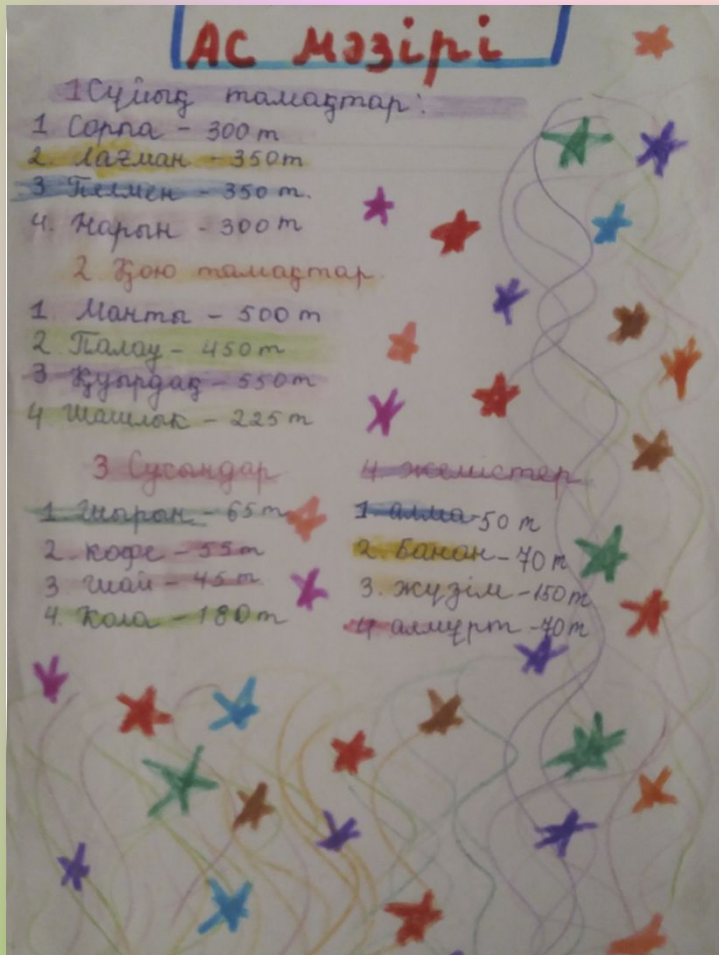 Ас мәзірі
1 Сұйық тамақтар:
1. Сорпа - 300 т
2. Лағман - 350 т
3 Пелмен - 350 т.
4. Нарын - 300 т
2 Қою тамақтар.
1. Манты - 500 т
2. Палау - 450 т
3 Қуырдақ - 550 т
4 Шашлык - 225 т
3 Сусындар
1 Шырын - 65 т
2. Кофе - 55 т
3 Шай - 45 т.
4. Кола - 180 т
4. жемістер
1 алма - 50 т
2. Банан - 70 т
3. жүзім - 150 т
4 алмұрт - 70 т